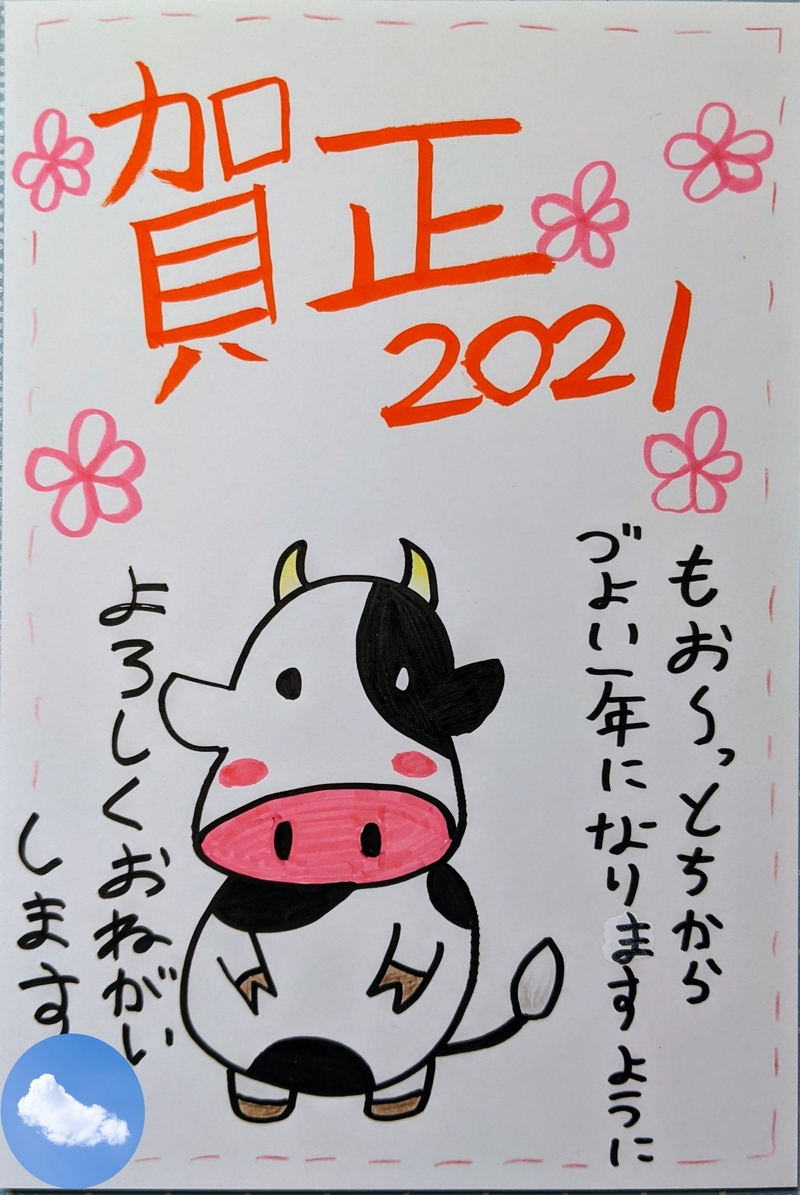 賀正
2021
もお〜っとちから
づよい一年になりますように
よろしくおねがい
します